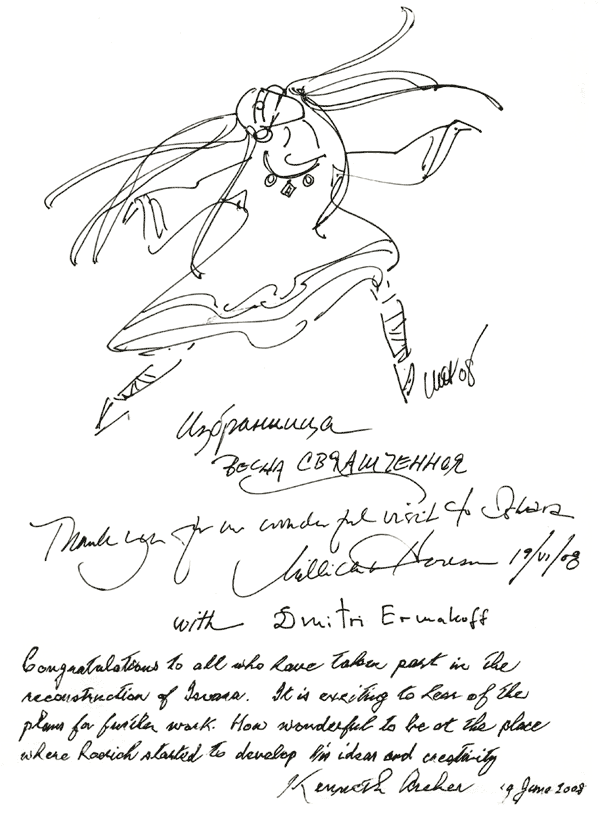 Избранница
ВЕСНА СВЯЩЕННАЯ
Thank you for our wonderful visit to Isvara
Millicent Hodson 19/VI/08
with Dmitri Ermakoff
Congratulations to all who have taken part in the
reconstruction of Isvara. It is exciting to hear of the
plans for further work. How wonderful to be at the place
where Roerich started to develop his ideas and creativity
Kenneth Archer 19 June 2008